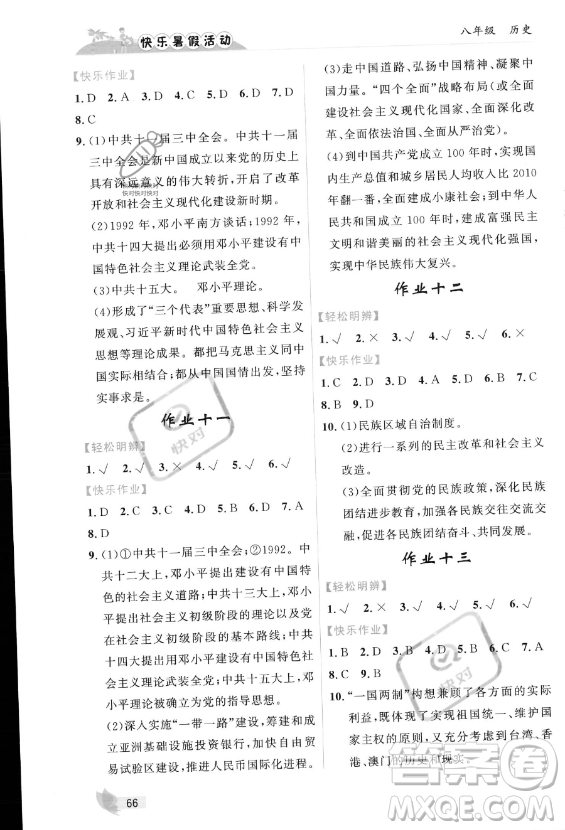 快乐暑假活动
八年级 历史
【快乐作业】
1. D 2. A 3. D 4. C 5. D 6. D 7. D
8. C
9. (1)中共十一届三中全会。中共十一届
三中全会是新中国成立以来党的历史上
具有深远意义的伟大转折,开创了改革
开放和社会主义现代化建设新时期。
(2)1992年,邓小平南方谈话;1992年,
中共十四大提出必须用邓小平建设有中
国特色社会主义理论武装全党。
(3)中共十五大。 邓小平理论。
(4)形成了“三个代表”重要思想、科学发
展观、习近平新时代中国特色社会主义
思想等理论成果。都把马克思主义同中
国实际相结合;都从中国国情出发,坚持
实事求是。
作业十一
【轻松明辨】
1. √ 2. √ 3. √ 4. √ 5. √ 6. √
【快乐作业】
1. D 2. D 3. A 4. D 5. B 6. D 7. A
8. D
9. (1)①中共十一届三中全会;②1992。中
共十二大上,邓小平提出建设有中国特色
的社会主义道路;中共十三大上,邓小平
提出社会主义初级阶段的理论以及党在
社会主义初级阶段的基本路线;1992年
中共十四大上,邓小平建设有中国特色社
会主义理论武装全党;1997年中共十五大
确立邓小平理论为党的指导思想。
(2)深入实施“一带一路”建设,筹建和成
立亚洲基础设施投资银行,建设自由贸
易试验区,推进人民币国际化进程。
(3)走中国道路、弘扬中国精神、凝聚中
国力量。“四个全面”战略布局(全面
建设社会主义现代化国家、全面深化改
革、全面推进依法治国、全面从严
治党)。
(4)到中国共产党成立100年时,实现国
内生产总值和城乡居民人均收入比2010
年翻一番,全面建成小康社会;到中华人
民共和国成立100年时,建成富强民主
文明和谐美丽的社会主义现代化强国,
实现中华民族伟大复兴。
作业十二
【轻松明辨】
1. √ 2. × 3. × 4. √ 5. √ 6. √
【快乐作业】
1. C 2. D 3. D 4. A 5. C 6. D 7. C
8. B 9. D
10. (1)民族区域自治制度。
(2)进行一系列的民主改革和社会主义
改造。
(3)全面贯彻党的民族政策,深入开展民族
团结进步教育,加强各民族交往交流交融,
促进各民族团结奋斗、共同繁荣发展。
作业十三
【轻松明辨】
1. √ 2. √ 3. × 4. √ 5. √ 6. ×
【快乐作业】
1. A 2. B 3. D 4. C 5. A 6. C 7. D
8. C 9. D
10. “一国两制”构想兼顾了各方面的实际
利益,其根本点是实现祖国统一、维护国
家主权的原则,又充分考虑到台湾、香
港、澳门的历史和现实。
66
快对
快对快对快对